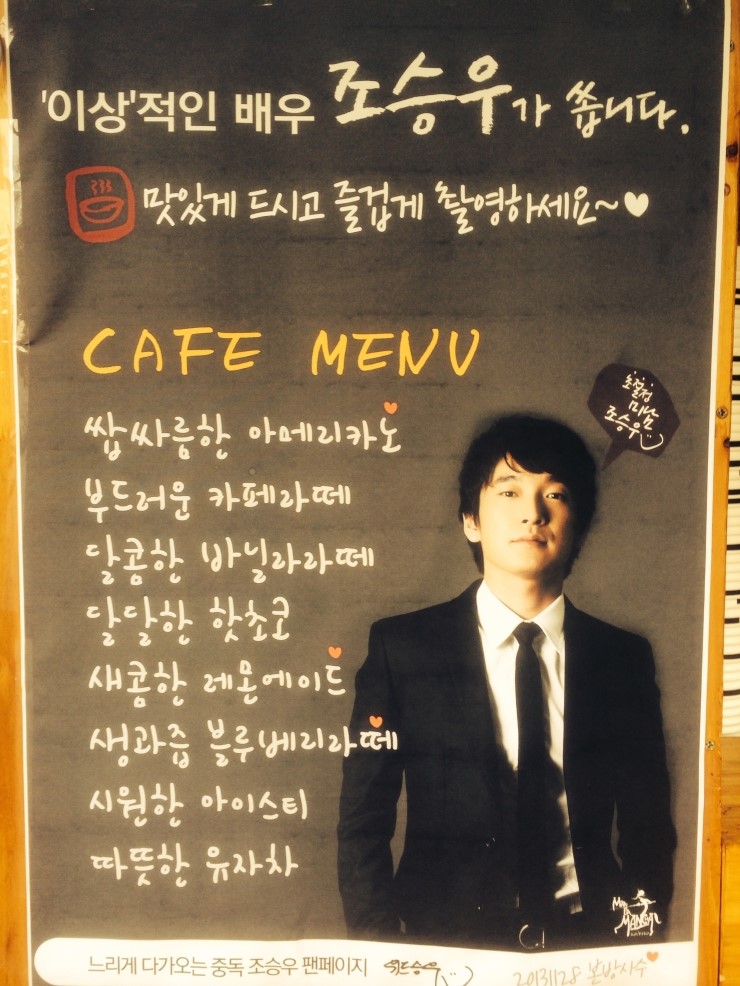 '이상'적인 배우 조승우가 쏩니다.
맛있게 드시고 즐겁게 촬영하세요~♥
CAFE MENU
초절정
미남
조승우
쌉싸름한 아메리카노
부드러운 카페라떼
달콤한 바닐라라떼
달달한 핫초코
새콤한 레몬에이드
생과즙 블루베리라떼
시원한 아이스티
따뜻한 유자차
느리게 다가오는 중독 조승우 팬페이지 위드승우
20131128 본방사수